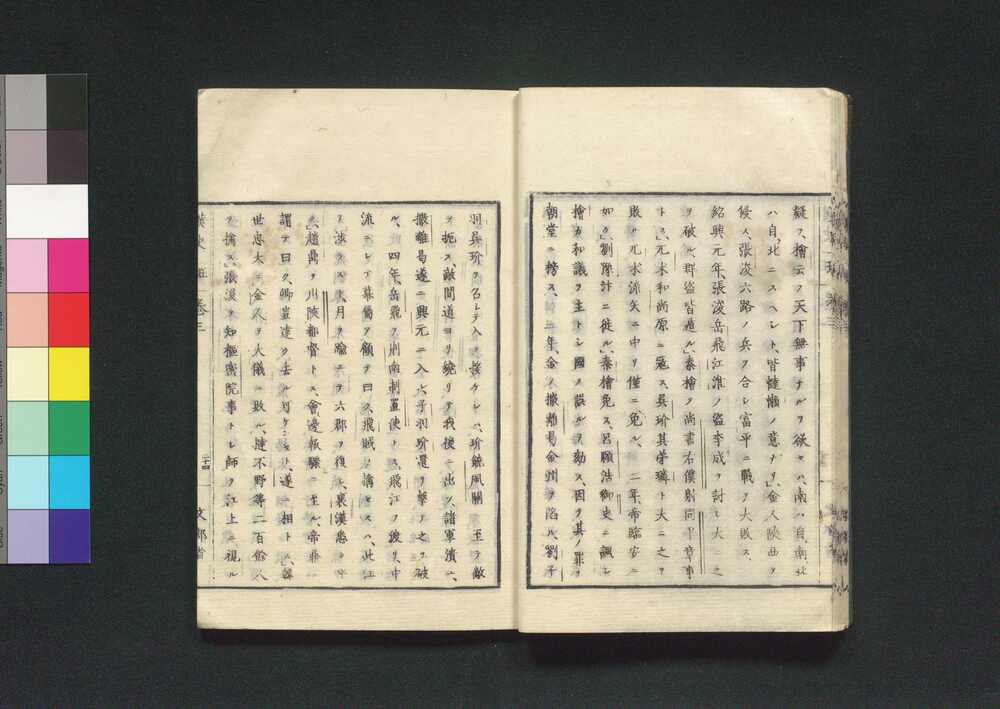 疑フ、檜云フ天下無事ナルヲ欲セハ、南ハ自南北
ハ自北ニスヘシト、皆憚懶ノ意ナリ」金人陝西ヲ
侵ス、張浚六路ノ兵ヲ合シ富平ニ戰ヲ大敗ス、
紹興元年、張浚岳飛江淮ノ盜李成ヲ討シ大ニ之
ヲ破ル、群盜皆遁ル」秦檜ヲ尚書右僕射同平章事
トス」兀朮和尚原ニ冦ス、呉玠其弟璘ト大ニ之ヲ
敗ル兀朮流矢ニ中リ僅ニ免ル、二年帝臨安ニ
如ク」劉豫汴ニ徙ル」秦檜免ス、呂頤浩御史ニ諷シ
檜カ和議ヲ主トシ國ヲ誤ルヲ劾ス、因テ其ノ罪ヲ
朝堂ニ榜ス、三年、金ノ撒離曷金州ヲ陷ル、劉子
羽呉玠ヲ召シテ入リ援ケシム、玠饒風關ニ至テ敵
ヲ扼ス、敵間道ヨリ繞リテ我後ニ出ツ、諸軍潰ユ、
撒離曷遂ニ興元ニ入ル子羽玠還リ擊テ之ヲ破
ル、四年、岳飛ヲ荊南制置使トス、飛江ヲ渡リ、中
流ニシテ幕屬ヲ顧テ曰ク、飛賊ヲ擒ニセスハ、此江
ヲ渉ラス、月ヲ踰テ六郡ヲ復ス、襄漢悉ク平
ク」趙鼎ヲ川陝都督トス、會邊報驟ニ至ル、帝鼎ニ
謂テ曰ク、卿豈遠ク去ル可ケンヤ、遂ニ相トス」韓
世忠大ニ金人ヲ大儀ニ敗ル、撻不野等二百餘人
ヲ擒ス、張浚ヲ知樞密院事トシ師ヲ江上ニ視ル
漢史 卷三
二十四
文部省